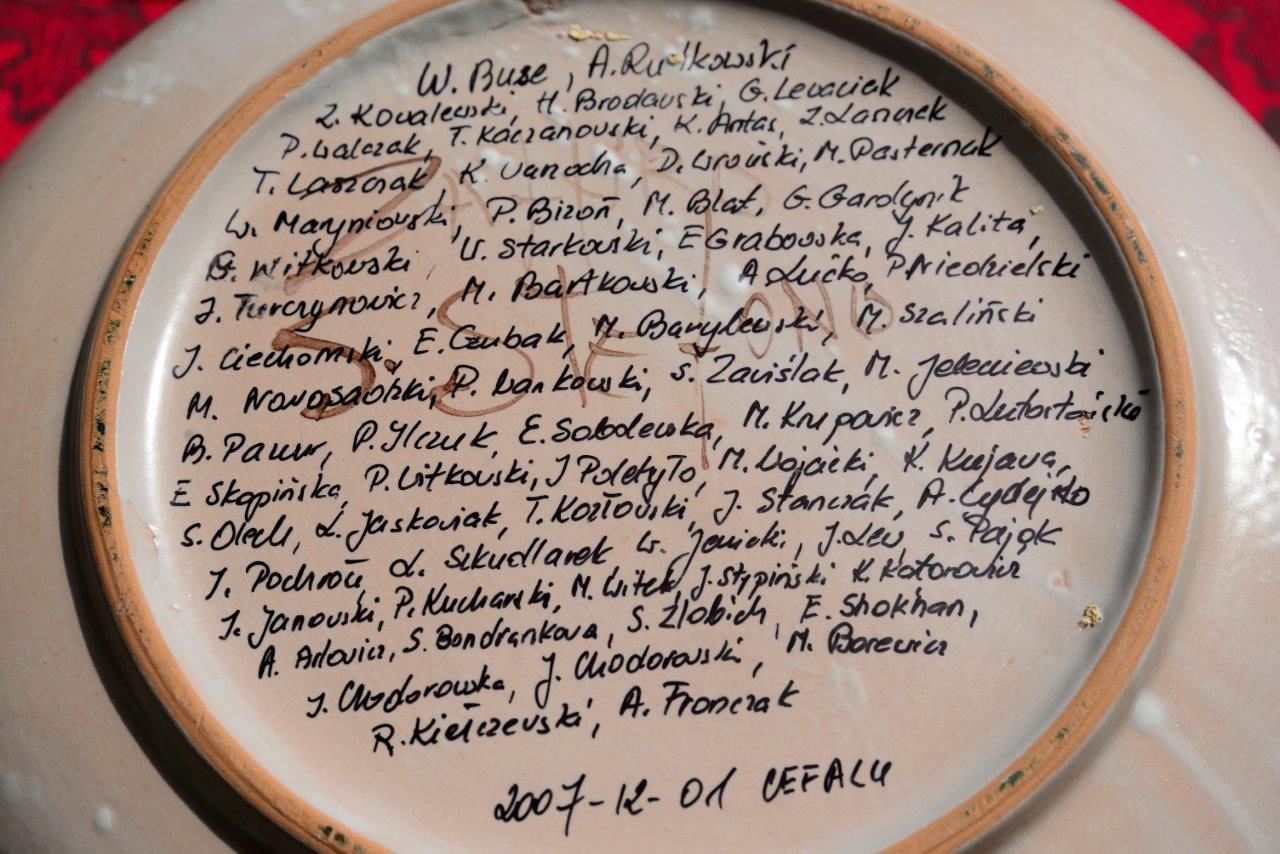 W. Buse, A. Rutkowski
Z. Kowalewski, H. Brodawski, G. Lewaciak
P. Walczak, T. Kaczanowski, K. Antas, Z. Łasurek
T. Laszczak, K. Warzocha, D. Wroński, M. Pasternak
W. Maryniowski, P. Bizoń, M. Blat, G. Gardynik
G. Witkowski, W. Starkowski, E Grabowska, J. Kalita,
J. Turczynowicz, M. Bartkowski, A Łućko, P. Niedzielski
J. Ciechomski, E. Czubak, M. Barylewski, M. Szaliński
M. Nowosadzki, P. Wankowski, S. Zawiślak, M. Jeleniewski
B. Pawur, P. Ilczuk, E. Sobolewska, M. Krupowicz, P.
E Skąpińska, P. Witkowski, J Poletyło, M. Wójcicki, K. Kujawa,
S. Olech, L. Jaskowiak, T. Kozłowski, J. Stańczak, A.
J. Pochroń, L. Szkudlarek W. Jenicki, J. Lew, S. Pająk
J. Janowski, P. Kucharski, M. Witek, J. Stypiński K. Kotorowicz
A. Arłowicz, S. Bondrankova, S. Zlobich, E. Shokhan,
J. Chodorowska, J. Chodorowski, M. Borewicz
R. Kiełczewski, A. Fronczak
2007-12-01 CEFALU
S. STEFANO